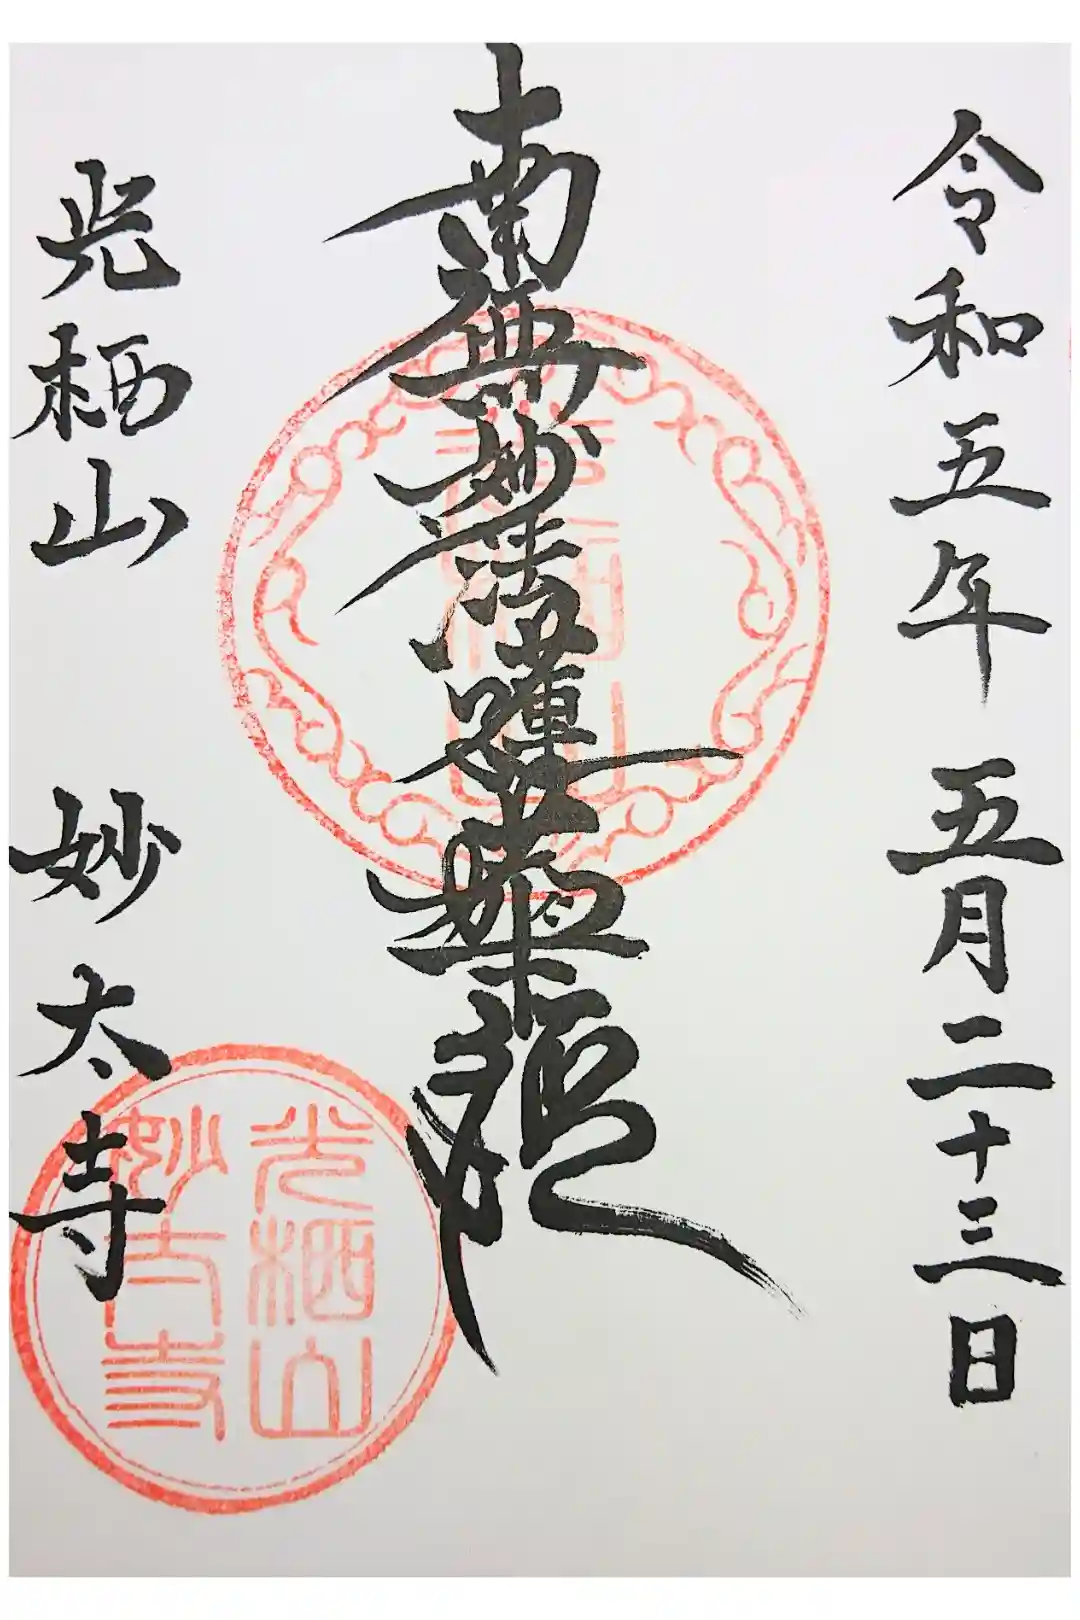 令和五年 五月二十三日
南無妙法蓮華経
光栖山 妙太寺
光栖山
妙太寺